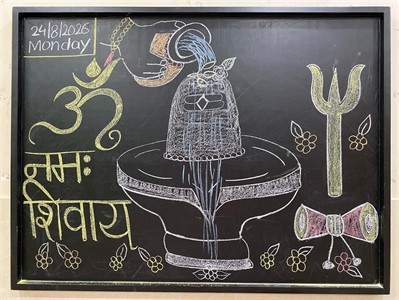 24/8/2026
Monday
ॐ
नमः
शिवाय